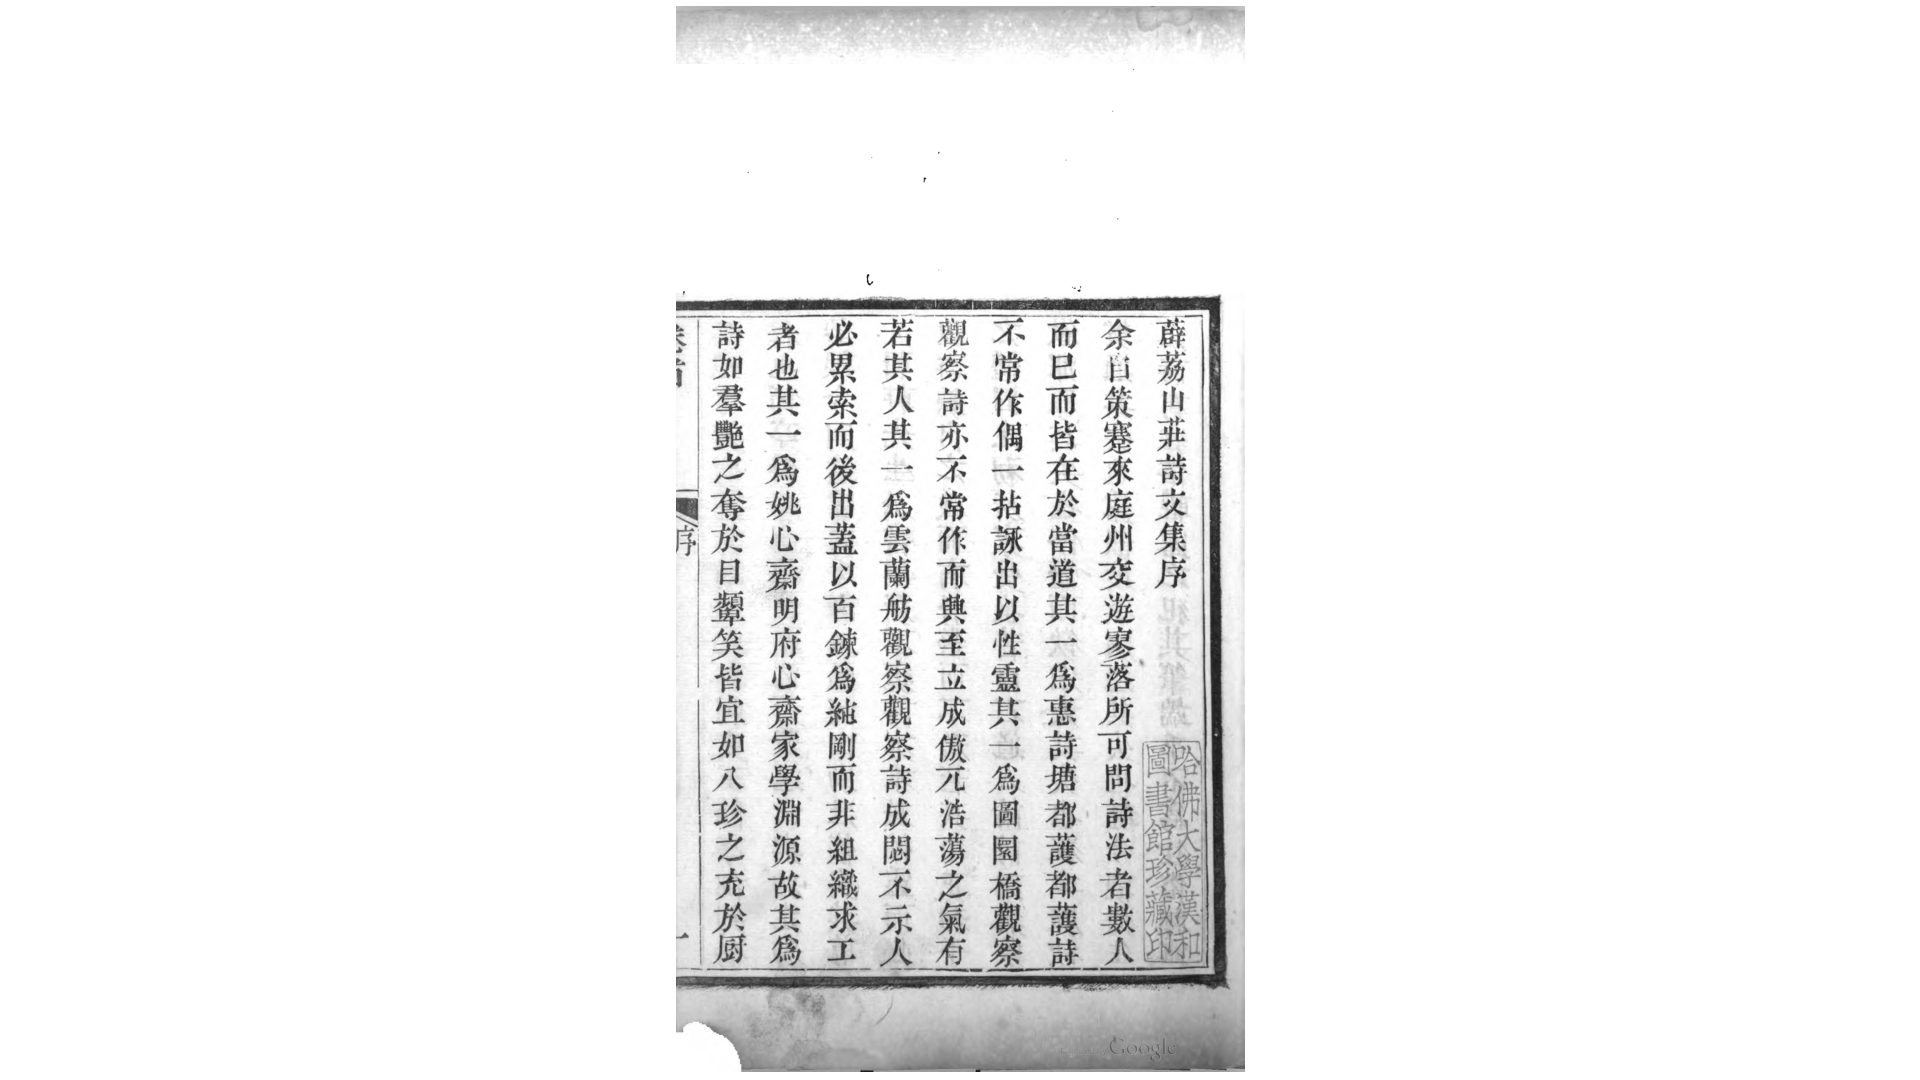 薜荔山莊詩文集序
余自策蹇來庭州交遊寥落所可問詩法者數人
而巳而皆在於當道其一爲惠詩塘都護都護詩
不常作偶一拈詠出以性靈其一爲圖圂橋觀察
觀察詩亦不常作而興至立成傲兀浩蕩之氣有
若其人其一爲雲蘭舫觀察觀察詩成閟不示人
必累索而後出蓋以百鍊爲純剛而非組織求工
者也其一爲姚心齋明府心齋家學淵源故其爲
詩如羣艷之奪於目顰笑皆宜如八珍之充於厨
卷首
序
一
哈佛大學漢和
圖書館珍藏印
Google